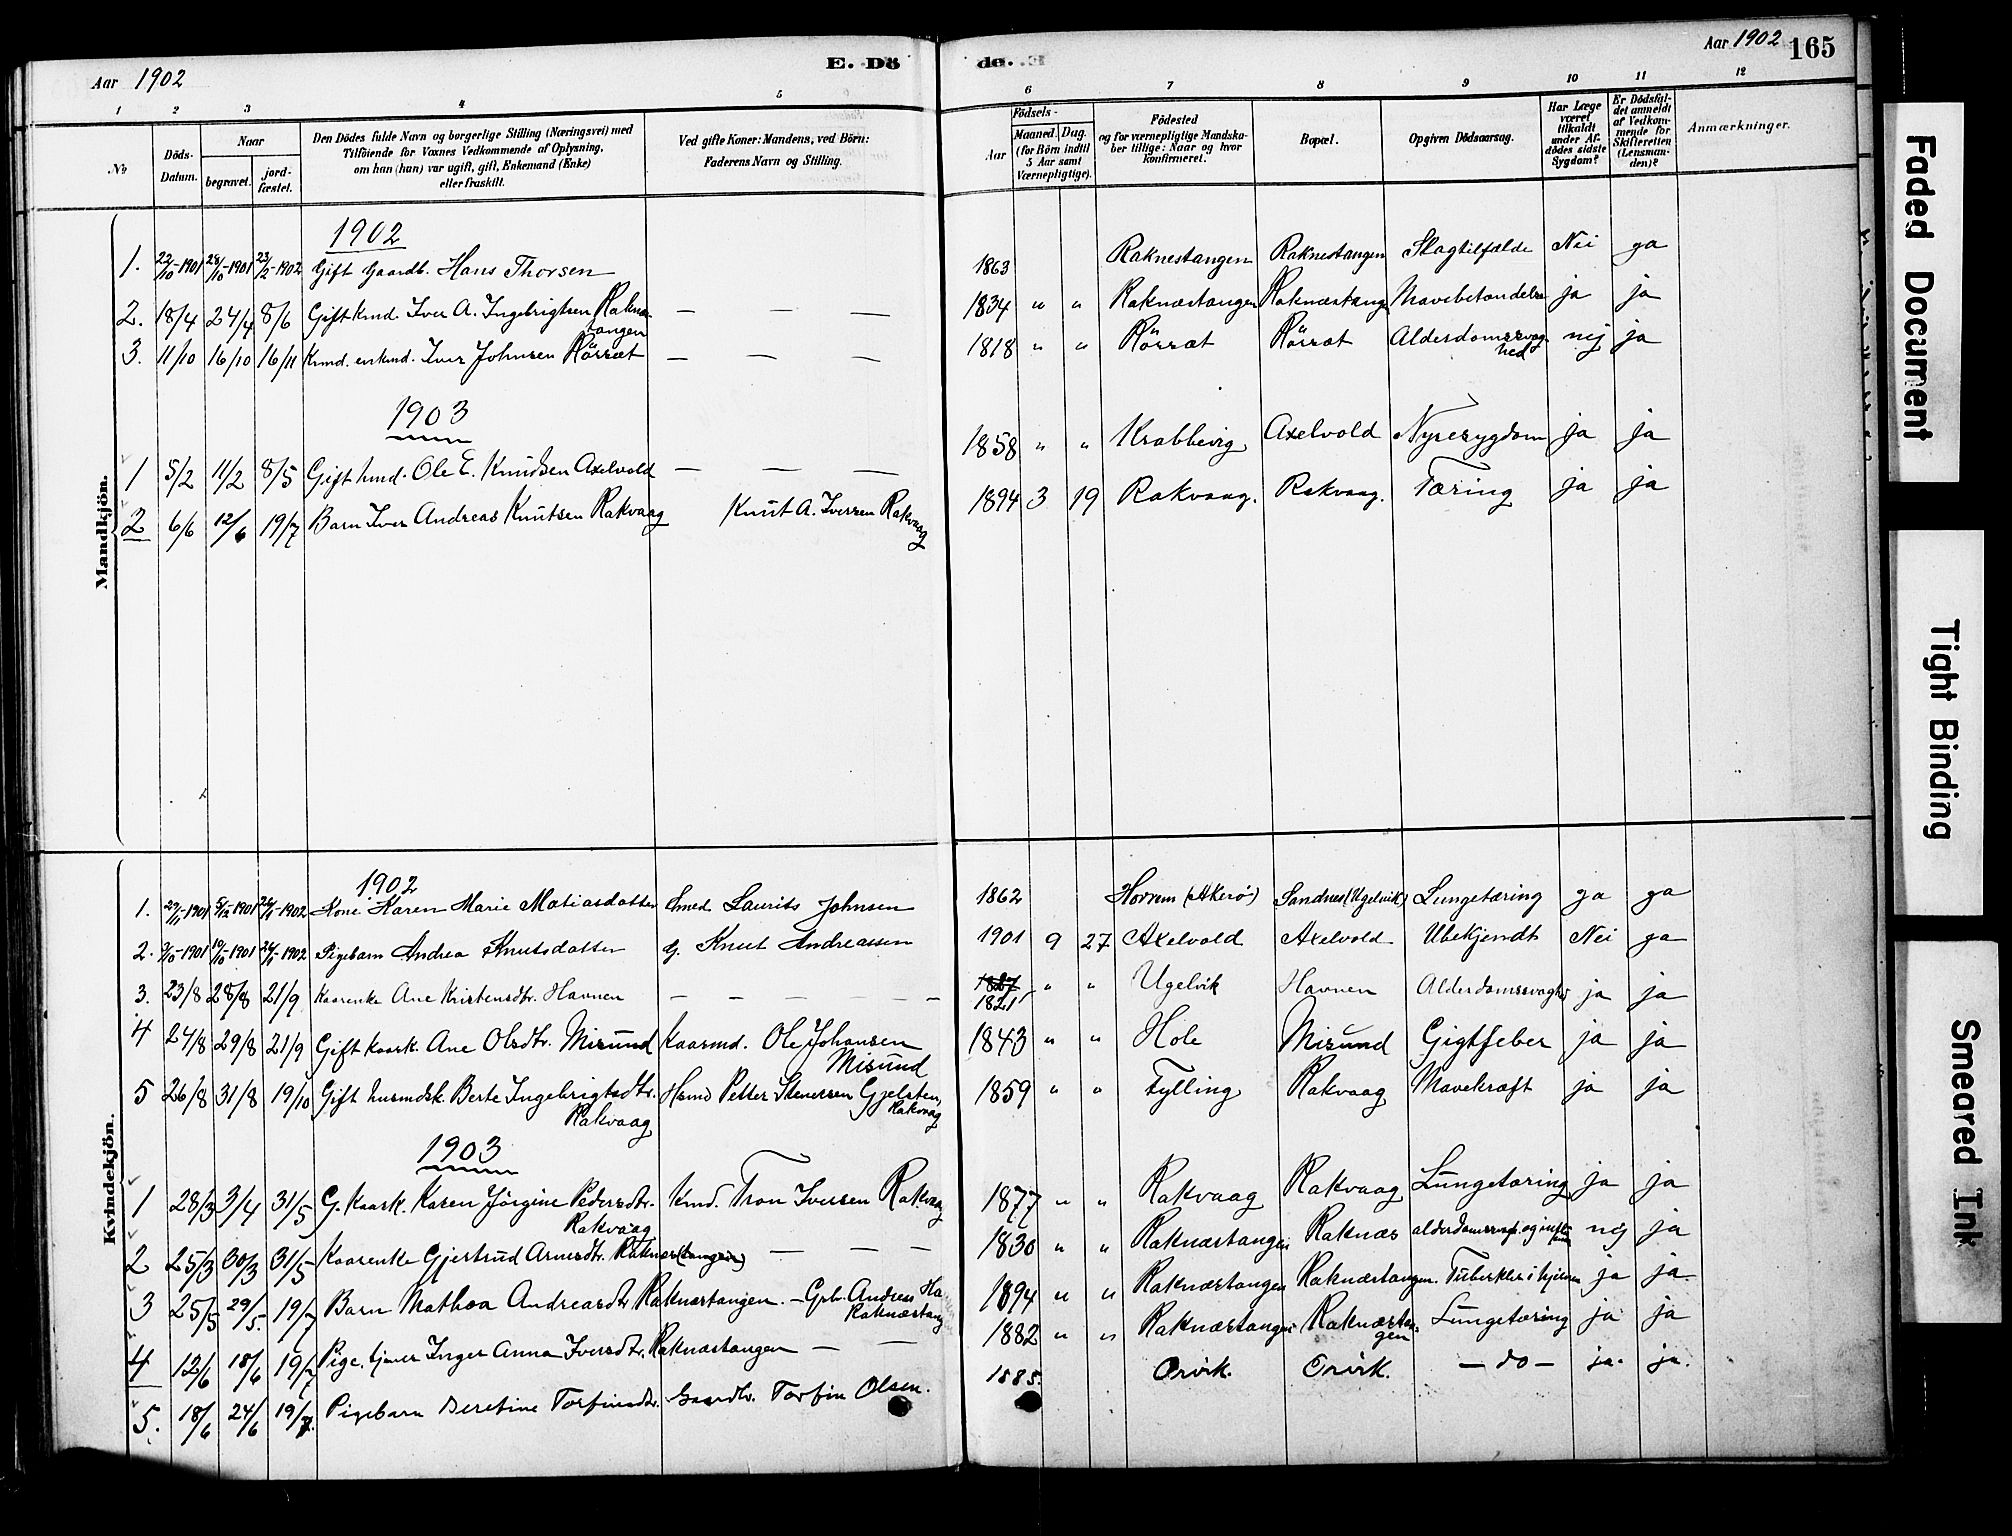 Aar 1902
E. Dö
de.
Aar 1902 165
1 2 3 4 5 6 7 8 9 10 11 12
No
Döds-Datum.
Naar
begravet.
jord-fæstet.
Den Dödes fulde Navn og borgerlige Stilling (Næringsvei) med
Tilföiende for Voxnes Vedkommende af Oplysning,
om han (hun) var ugift, gift, Enkemand (Enke)
eller fraskilt.
Ved gifte Koner: Mandens, ved Börn:
Faderens Navn og Stilling.
Födsels-
Aar
Maaned. Dag.
(for Börn indtil
5 Aar samt
Værnepligtige).
Födested
og for værnepligtige Mandska-
ber tillige: Naar og hvor
konfirmeret.
Bopæl.
Opgiven Dödsaarsag.
Har Læge
været
tilkaldt
under Af-
dödes sidste
Sygdom?
Er Dödsfal-
det anmeldt
af Vedkom-
mende for
Skifteretten
(Lensman-
den)?
Anmærkninger.
Mandkjön.
1902
1. 22/10-1901 28/10-1901 23/2-1902 Gift Gaardb. Hans Thorsen 1863 Raknestangen Raknestangen Slagtilfælde Nei ja
2. 18/4 24/4 8/6 Gift kmd. Iver A. Ingebrigtsen Raknæstangen — — — 1834 " " Raknæstangen Raknæstange Mavebetændelse ja ja
3. 11/10 16/10 16/11 Kmd. enkmd. Iver Johnsen Rörsæt — — — 1818 " " Rörsæt Rörsæt Alderdomssvaghed nij ja
1903
1 5/2 11/2 8/5 Gift hmd. Ole E. Knudsen Axelvold — — — 1858 " " Krabbevig Axelvold Nyresygdom ja ja
2 6/6 12/6 19/7 Barn Iver Andreas Knutsen Rakvaag Knut A. Iversen Rakvaag 1894 3 19 Rakvaag. Rakvaag. Tæring ja ja
Kvindekjön.
1902
1. 29/11-1901 5/12-1901 26/1-1902 Kone Karen Marie Matiasdatter Smed Laurits Johnsen 1862 Horrem (Akerö) Sandnes (Ugelvik) Lungetæring ja ja
2. 9/10-1901 19/10-1901 26/1-1902 Pigebarn Andrea Knutsdatter g. Knut Andreassen 1901 9 27 Axelvold Axelvold Ubekjendt Nei ja
3. 23/8 28/8 21/9 Kaarenke Ane Kristensdtr. Havnen — — — — 1821 " " Ugelvik Havnen Alderdomssvaghed ja ja
4 24/8 29/8 21/9 Gift kaark. Ane Olsdtr. Misund Kaarmd. Ole Johansen Misund 1843 " " Hole Misund Gigtfeber ja ja
5 26/8 31/8 19/10 Gift husmdsk. Berte Ingebrigtsdtr. Rakvaag Hsmd Petter Stenersen Gjelsten, Rakvaag 1859 " " Fylling Rakvaag Mavekræft ja ja
1903
1 28/3 3/4 31/5 G. Kaark. Karen Jörgine Pedersdtr. Rakvaag Kmd. Tron Iversen Rakvaag 1877 " " Rakvaag Rakvaag Lungetæring ja ja
2 25/3 30/3 31/5 Kaarenke Gjertrud Arnesdtr. Raknes(tangen) — — — 1830 " " Raknæstangen Raknæs nij ja
3 25/5 29/5. 19/7 Barn Mathea Andreasdtr Raknæstangen. — Grb. Andreas Ha Raknæstang 1894 " " Raknæstangen Raknæstangen. Tuberkler i hjernen ja ja.
4 12/6 18/6 19/7 Pige. Inger Anna Iversdtr. Raknæstangen — — 1882 " " Raknæstangen Raknæstangen Lungetæring ja ja
5. 18/6 24/6 19/7. Pigebarn Beretine Torfinsdtr. Gaardbr. Torfin Olsen. 1885. Orvik. Orvik. — do — ja. ja.
Faded Document
Tight Binding
Smeared Ink